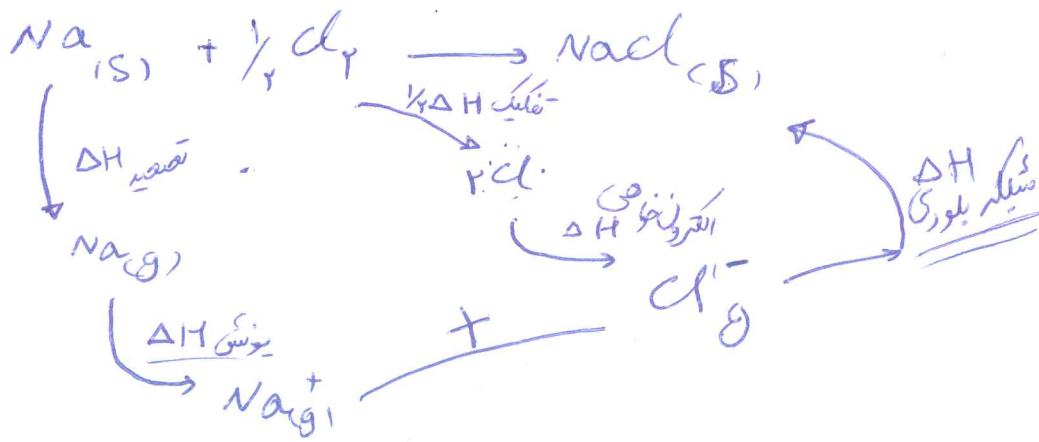 Na(s) + ۱/۲ Cl۲ → NaCl(s)
۱/۲ ΔH تفکیک
ΔH تصعید
۲ :Cl·
ΔH الکترون‌خواهی
ΔH شبکه بلوری
Na(g)
Cl⁻g
+
ΔH یونش
Na⁺(g)